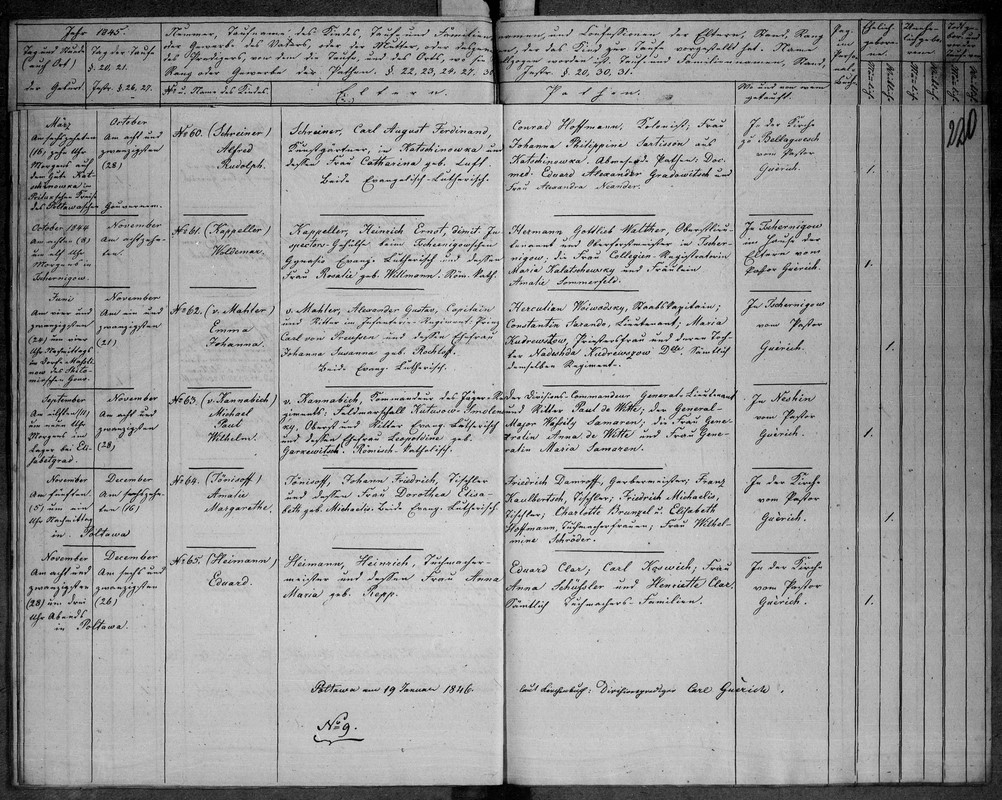 Jahr 1845.
Tag und Stunde
(auch Ort)
der Geburt.
Tag der Taufe
§. 20, 21.
Instr. § 26, 27.
Nummer, Taufname des Kindes, Tauf- und Familien-
namen, und Confessionen der Eltern, Stand, Rang
oder Gewerbe des Vaters, oder der Mutter, oder
des Predigers, von dem die Taufe, und des Orts, wo sie
Rang oder Gewerbe der Pathen. § 22, 23, 24, 27, 30
Instr. § 20, 30, 31.
No u. Name des Kindes.
Eltern.
Pathen.
Wo und von wem
getauft.
220
März
Am sechszehnten
(16) zehn Uhr
Morgens auf
dem Gute Kat-
schinowka im
des Poltawaschen Gouvernem.
October
Am acht und
zwanzigsten
(28)
No 60. (Schreiner)
Alfred
Rudolph.
Schreiner, Carl August Ferdinand,
Kunstgärtner, in Katschinowka und
dessen Frau Catharina geb. Luft.
Beide Evangelisch-Lutherisch.
Conrad Hoffmann, Kolonist; Frau
Johanna Philippine Sartisson aus
Katschinowka. Abwesende Pathen: Doc.
med. Eduard Alexander Gradewitsch und
Frau Alexandra Neander.
In der Kirche
zu Belloweesch
vom Pastor
Guérich.
1.
October 1844
Am achten (8)
um elf Uhr
Morgens in
Tschernigow.
November
Am achtzehn-
ten.
No 61. (Kappeller)
Woldemar.
Kappeller, Heinrich Ernst, dimit. In-
spectors-Gehülfe beim Tschernigowschen
Gymnasio Evang. Lutherisch und dessen
Frau Rosalie geb. Willmann. Röm. Kath.
Hermann Gottlieb Walther, Oberstlieu-
tenant und Oberforstmeister in Tscher-
nigow, die Frau Collegien-Registratorin
Maria Kalatschewsky und Fräulein
Amalie Sommerfeld.
In Tschernigow
im Hause der
Eltern vom
Pastor Guérich.
1.
Juni
Am vier und
zwanzigsten
(24) um vier
Uhr Nachmittags
November
Am ein und
zwanzigsten
(21)
No 62. (v. Mahler)
Emma
Johanna.
v. Mahler, Alexander Gustav, Capitain
und Ritter im Infanterie-Regiment Prinz
Carl von Preussen und dessen Ehefrau
Johanna Susanna geb. Rochloff.
Beide Evang. Lutherisch.
Herculian Woiwodsky, Staabskapitain;
Constantin Sarando, Lieutenant; Maria
Kudrewszow, Priestersfrau und deren Toch-
ter Nadeshda Kudrewszow Dlle. Sämtlich
demselben Regiment.
In Tschernigow
vom Pastor
Guérich.
1.
September
Am elften (11)
um neun Uhr
Morgens im
Lager bei Eli-
sabetgrad.
November
Am acht und
zwanzigsten
(28)
No 63. (v. Kannabich)
Michael
Paul
Wilhelm.
v. Kannabich, Kommandeur des Jäger-Re-
giments: Feldmarschall Kutusow-Smolens-
ky, Oberst und Ritter Evang. Lutherisch
und dessen Ehefrau Leopoldine geb.
Garkewitsch. Römisch-Katholisch.
Der Divisions-Commandeur General-Lieutenant
und Ritter Paul de Witte; der General-
Major Wassily Samaren; die Frau Gene-
ralin Anna de Witte und Frau Gene-
ralin Maria Samaren.
In Neshin
vom Pastor
Guérich.
1.
November
Am fünften
(5) um ein
Uhr Nachmittag
in Poltawa
December
Am sechszehn-
ten (16)
No 64. (Tönisoff)
Amalie
Margarethe.
Tönisoff, Johann Friedrich, Tischler
und dessen Frau Dorothea Elisa-
beth geb. Michaelis. Beide Evang. Lutherisch.
Friedrich Damroff, Gerbermeister; Franz
Kaulbertsch, Tischler; Friedrich Michaelis,
Tischler; Charlotte Brunzel u. Elisabeth
Hoffmann, Tuchmacherfrauen; Frau Wilhel-
mine Schröder.
In der Kirche
vom Pastor
Guérich.
1.
November
Am acht und
zwanzigsten
(28) um drei
Uhr Abends
in Poltawa.
December
Am sechs und
zwanzigsten
(26)
No 65. (Heimann)
Eduard.
Heimann, Heinrich, Tuchmacher-
meister und dessen Frau Anna
Maria geb. Ropp.
Eduard Clar; Carl Koswich; Frau
Anna Schüssler und Henriette Clar,
Sämtlich Tuchmachers-Familien.
In der Kirche
vom Pastor
Guérich.
1.
Poltawa am 19 Januar 1846.
laut Kirchenbuch: Divisionsprediger Carl Guérich.
No 9.